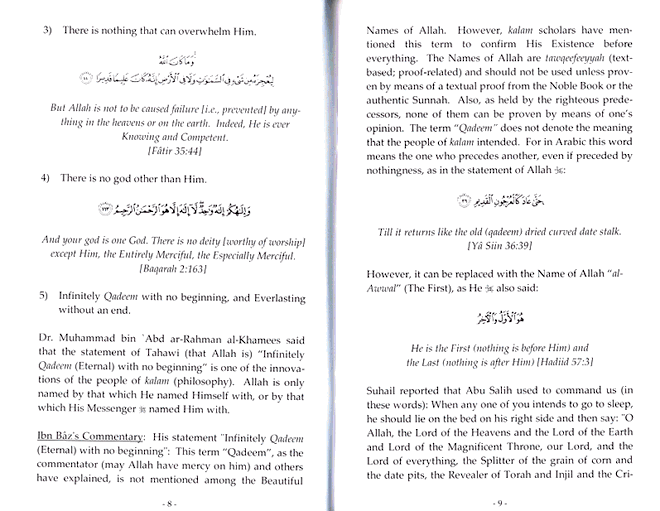 3) There is nothing that can overwhelm Him.
وَمَا كَانَ اللَّهُ
لِيُعْجِزَهُ مِن شَيْءٍ فِي السَّمَوَاتِ وَلَا فِي الْأَرْضِ إِنَّهُ كَانَ عَلِيمًا قَدِيرًا ﴿٤٤﴾
But Allah is not to be caused failure [i.e., prevented] by any-
thing in the heavens or on the earth. Indeed, He is ever
Knowing and Competent.
[Fâtir 35:44]
4) There is no god other than Him.
وَإِلَهُكُمْ إِلَهٌ وَاحِدٌ لَّا إِلَهَ إِلَّا هُوَ الرَّحْمَنُ الرَّحِيمُ ﴿١٦٣﴾
And your god is one God. There is no deity [worthy of worship]
except Him, the Entirely Merciful, the Especially Merciful.
[Baqarah 2:163]
5) Infinitely Qadeem with no beginning, and Everlasting
without an end.
Dr. Muhammad bin 'Abd ar-Rahman al-Khamees said
that the statement of Tahawi (that Allah is) "Infinitely
Qadeem (Eternal) with no beginning" is one of the innova-
tions of the people of kalam (philosophy). Allah is only
named by that which He named Himself with, or by that
which His Messenger ﷺ named Him with.
Ibn Bâz's Commentary: His statement "Infinitely Qadeem
(Eternal) with no beginning": This term "Qadeem", as the
commentator (may Allah have mercy on him) and others
have explained, is not mentioned among the Beautiful
- 8 -
Names of Allah. However, kalam scholars have men-
tioned this term to confirm His Existence before
everything. The Names of Allah are tawqeefeeyyah (text-
based; proof-related) and should not be used unless prov-
en by means of a textual proof from the Noble Book or the
authentic Sunnah. Also, as held by the righteous prede-
cessors, none of them can be proven by means of one's
opinion. The term "Qadeem" does not denote the meaning
that the people of kalam intended. For in Arabic this word
means the one who precedes another, even if preceded by
nothingness, as in the statement of Allah :
حَتَّى عَادَ كَالْعُرْجُونِ الْقَدِيمِ ﴿٣٩﴾
Till it returns like the old (qadeem) dried curved date stalk.
[Yâ Siin 36:39]
However, it can be replaced with the Name of Allah "al-
Awwal" (The First), as He also said:
هُوَ الْأَوَّلُ وَالْآخِرُ
He is the First (nothing is before Him) and
the Last (nothing is after Him) [Hadiid 57:3]
Suhail reported that Abu Salih used to command us (in
these words): When any one of you intends to go to sleep,
he should lie on the bed on his right side and then say: "O
Allah, the Lord of the Heavens and the Lord of the Earth
and Lord of the Magnificent Throne, our Lord, and the
Lord of everything, the Splitter of the grain of corn and
the date pits, the Revealer of Torah and Injil and the Cri-
- 9 -